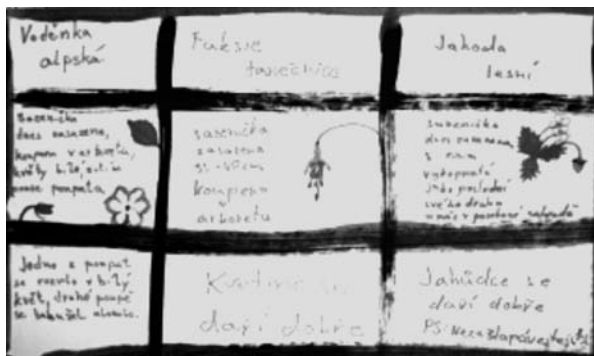 Voděnka
alpská
Fuksie
tanečnice
Jahoda
lesní
Sazenička
dnes zasazena,
koupena v arboretu,
květy bílé,
pouze poupata
sazenička
zasazena
koupena v
arboretu
sazenička
dnes
s
vykopaná
jako poslední
svého druhu
u nás v zahradě
Jedno z poupat
se rozvilo v bílý
květ, druhé poupě
se
Květině se
daří dobře
Jahůdce se
daří dobře
PS: Nezašlapávejte ji!